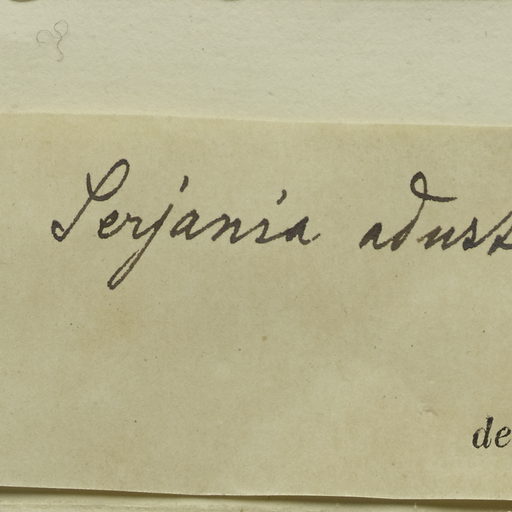 Serjania adust
de